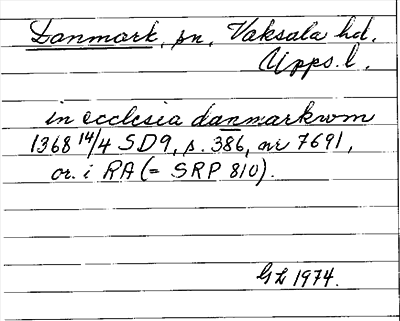 Danmark, sn, Vaksala hd.
Upps. l.
in ecclesia danmarkwm
1368 14/4 SD9, s. 386, nr 7691,
or. i RA (= SRP 810).
G L 1974.